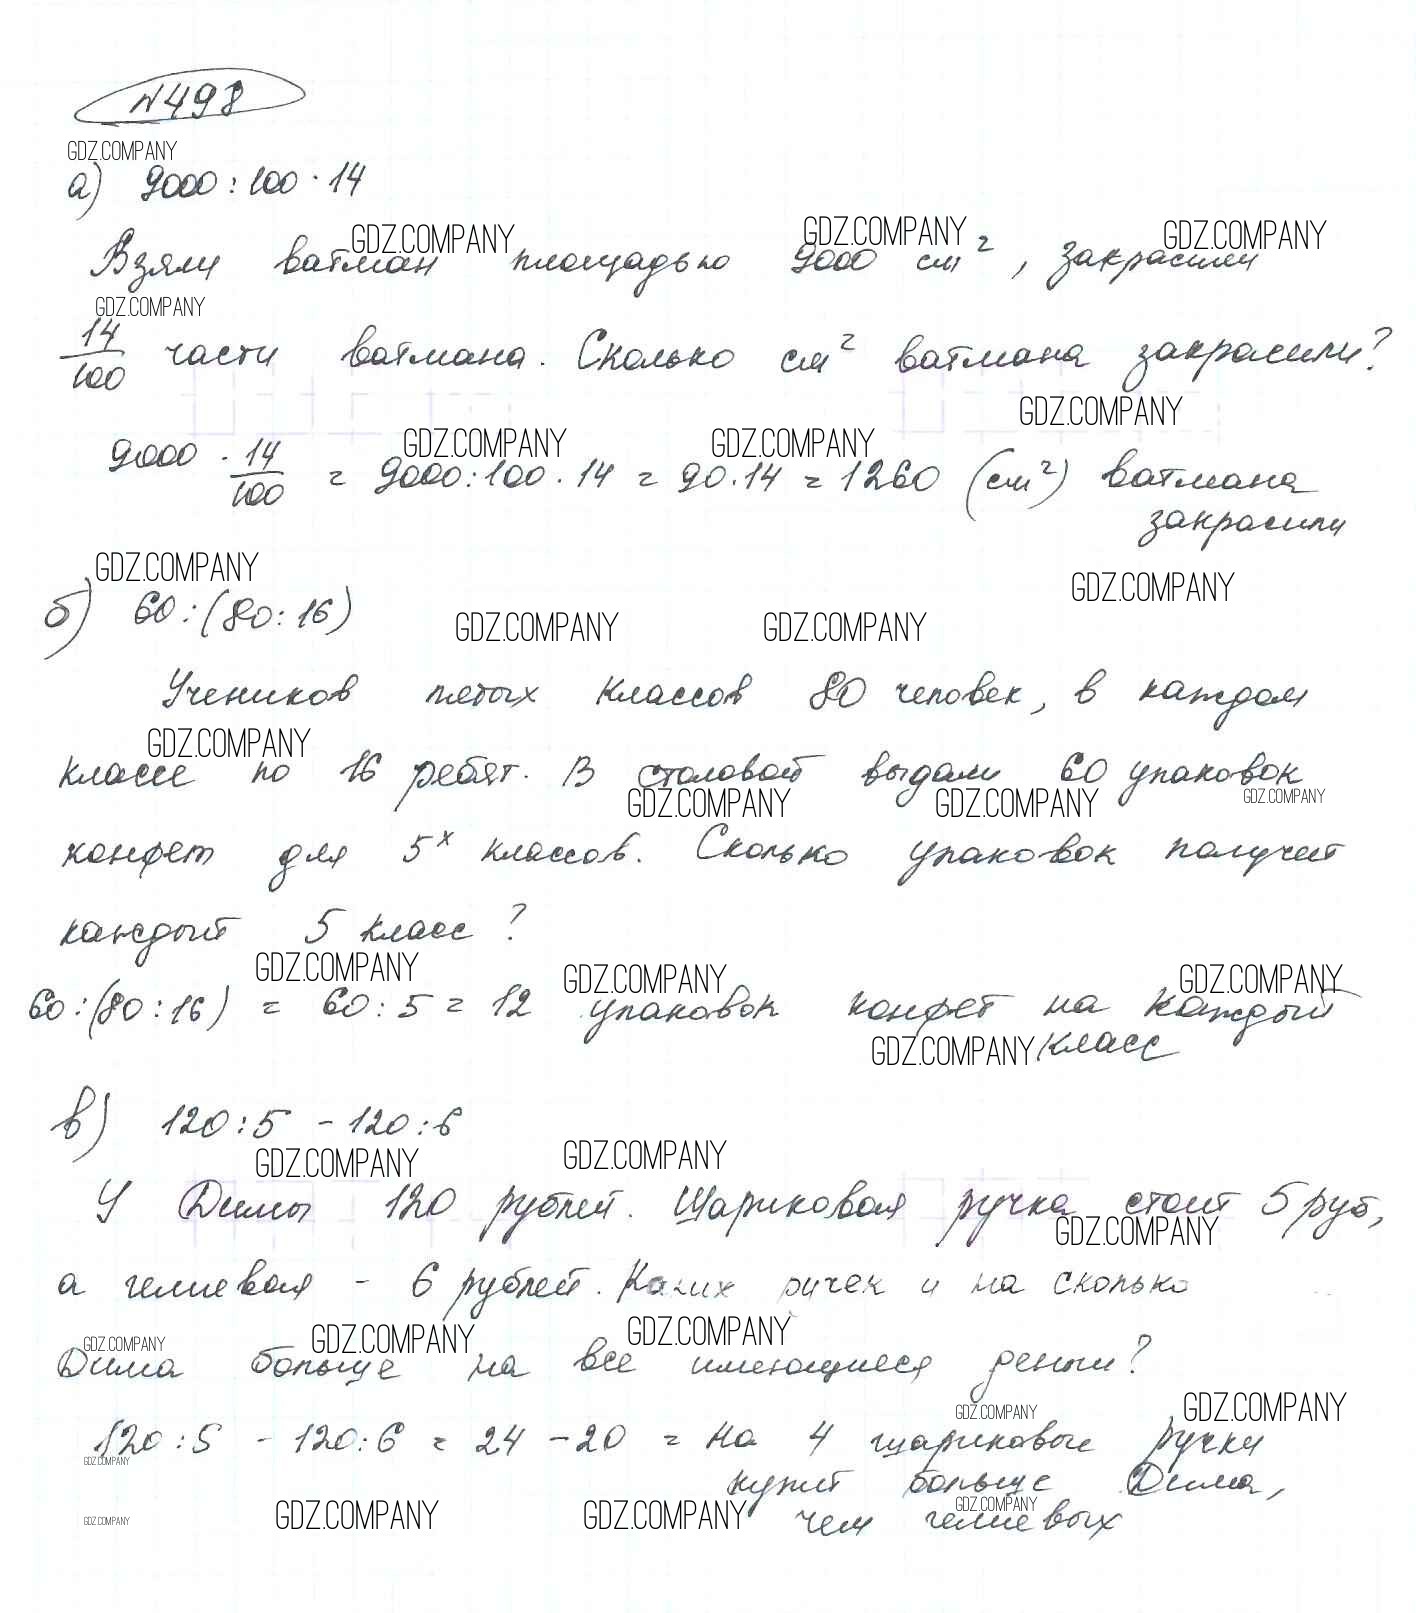 №498
GDZ.COMPANY
а) 9000 : 100 · 14
GDZ.COMPANY GDZ.COMPANY GDZ.COMPANY
Взяли ватман площадью 9000 см², закрасили
GDZ.COMPANY
14/100 части ватмана. Сколько см² ватмана закрасили?
GDZ.COMPANY
GDZ.COMPANY GDZ.COMPANY
9000 · 14/100 = 9000:100 · 14 = 90·14 = 1260 (см²) ватмана
закрасили
GDZ.COMPANY GDZ.COMPANY
б) 60:(80:16)
GDZ.COMPANY GDZ.COMPANY
Учеников пятых классов 80 человек, в каждом
GDZ.COMPANY
классе по 16 ребят. В столовой выдали 60 упаковок
GDZ.COMPANY GDZ.COMPANY GDZ.COMPANY
конфет для 5х классов. Сколько упаковок получит
каждый 5 класс?
GDZ.COMPANY GDZ.COMPANY GDZ.COMPANY
60:(80:16) = 60:5 = 12 упаковок конфет на каждый
GDZ.COMPANY класс
в) 120:5 - 120:6
GDZ.COMPANY GDZ.COMPANY
У Димы 120 рублей. Шариковая ручка стоит 5 руб,
GDZ.COMPANY
а гелиевая - 6 рублей. Каких ручек и на сколько
GDZ.COMPANY GDZ.COMPANY GDZ.COMPANY
Дима больше на все имеющиеся деньги?
GDZ.COMPANY GDZ.COMPANY
120:5 - 120:6 = 24 - 20 = на 4 шариковые ручки
GDZ.COMPANY
купит больше Дима,
GDZ.COMPANY GDZ.COMPANY GDZ.COMPANY GDZ.COMPANY
чем гелиевых